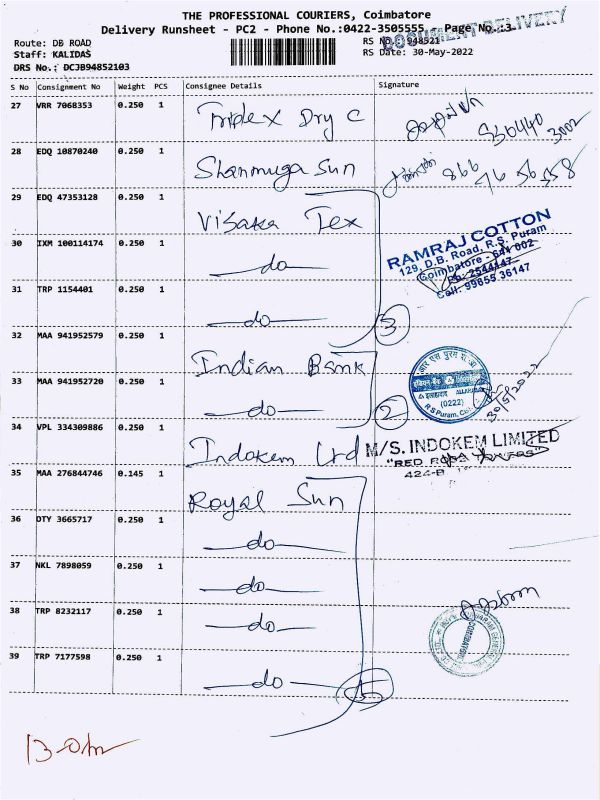 THE PROFESSIONAL COURIERS, Coimbatore
Delivery Runsheet - PC2 - Phone No.:0422-3505555 - Page No.:3
DOCUMENT DELIVERY
Route: DB ROAD
RS No.: 948521
Staff: KALIDAS
RS Date: 30-May-2022
DRS No.: DCJB94852103
S No Consignment No Weight PCS Consignee Details Signature
27 VRR 7068353 0.250 1 Tridex Dry C
936440
3002
28 EDQ 10870240 0.250 1 Shanmuga Sun 866
76 56558
29 EDQ 47353128 0.250 1 Visaka Tex
RAMRAJ COTTON
129, D.B. Road, R.S. Puram
Coimbatore - 641 002
Ph: 2544147
Cell: 99655 36147
30 IXM 100114174 0.250 1 —do—
31 TRP 1154401 0.250 1 —do— 3
32 MAA 941952579 0.250 1 Indian Bank
33 MAA 941952720 0.250 1 —do— 2
आर एस पुरम
इंडियन बैंक
इलाहाबाद ALLAHABAD
(0222)
R S Puram,
30/5/2022
34 VPL 334309886 0.250 1 Indokem Ltd
M/S. INDOKEM LIMITED
"RED ROSE TOWERS"
424-B
35 MAA 276844746 0.145 1 Royal Sun
36 OTY 3665717 0.250 1 —do—
37 NKL 7898059 0.250 1 —do—
38 TRP 8232117 0.250 1 —do—
COIMBATORE
39 TRP 7177598 0.250 1 —do— 5